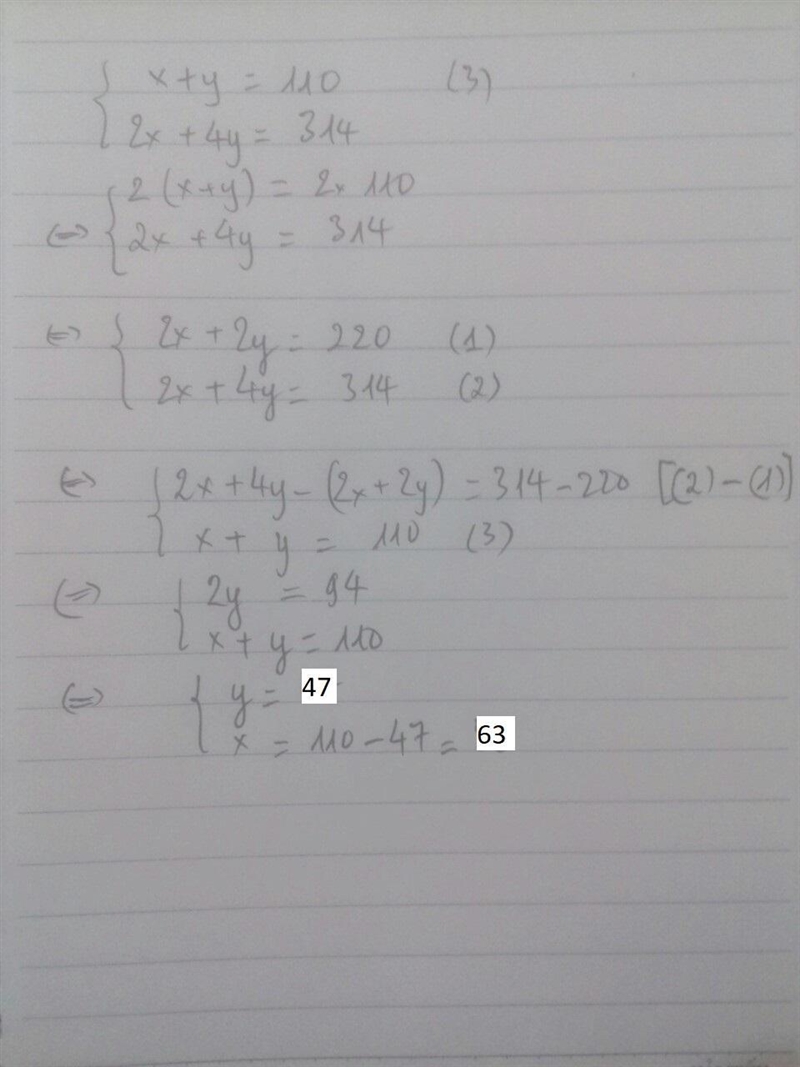 { x + y = 110 (3)
2x + 4y = 314
⇔ { 2 (x+y) = 2x 110
2x + 4y = 314
⇔ { 2x + 2y = 220 (1)
2x + 4y = 314 (2)
⇔ { 2x + 4y - (2x + 2y) = 314 - 220 [(2) - (1)]
x + y = 110 (3)
⇔ { 2y = 94
x + y = 110
⇔ { y = 47
x = 110 - 47 = 63